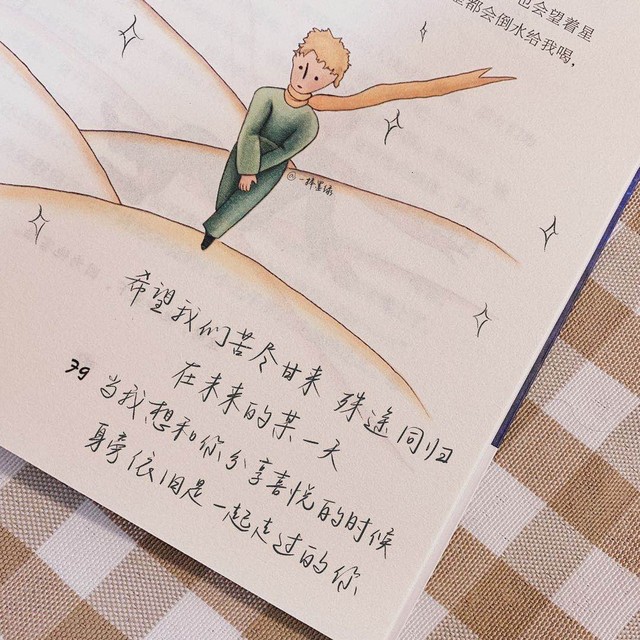 也会望着星
都会倒水给我喝，
@一棒墨绿
希望我们苦尽甘来 殊途同归
在未来的某一天
当我想和你分享喜悦的时候
身旁依旧是一起走过的你
79